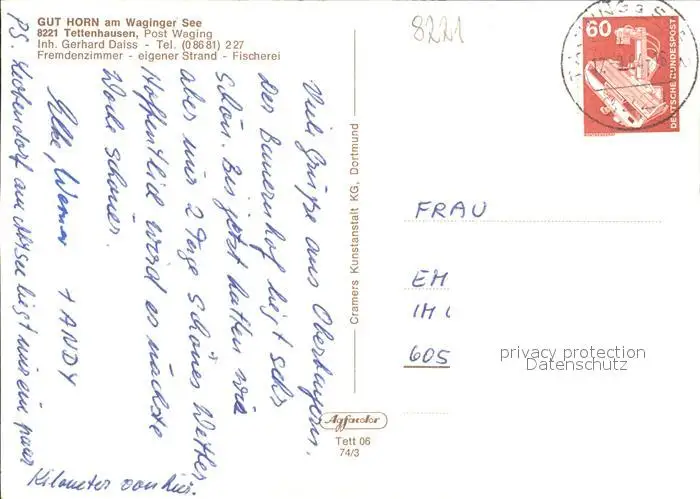 GUT HORN am Waginger See
8221 Tettenhausen, Post Waging
Inh. Gerhard Daiss - Tel. (0 86 81) 2 27
Fremdenzimmer - eigener Strand - Fischerei
8221
60
DEUTSCHE BUNDESPOST
Viele Grüße aus Oberbayern.
Der Bauernhof liegt sehr
schön. Bis jetzt hatten wir
aber nur 2 Tage schönes Wetter
Hoffentlich wird es nächste
Woche schöner.
Elke, Werner + ANDY
PS. am liegt nur ein paar
Kilometer von hier.
Cramers Kunstanstalt KG, Dortmund
FRAU
EM
IM
605
privacy protection
Datenschutz
Agfacolor
Tett 06
74/3